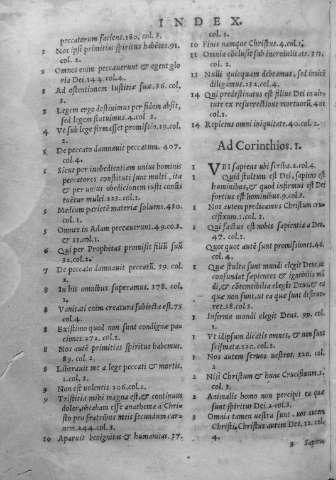 INDEX.
peccatorum faciens. 180. col. 3.
2 Nos ipsi primitias spiritus habétes. 91. col. 2.
2 Omnes enim peccauerunt & egent gloria Dei. 144. col. 4.
3 Ad ostentionem iustitiæ suæ. 36. col. 3.
3 Legem ergo destruimus per fidem absit, sed legem statuimus. 4. col. 2.
4 Vt sub lege firma esset promissio. 19. col. 2.
5 De peccato damnauit peccatum. 407. col. 4.
5 Sicut per inobedientiam unius hominis peccatores constituti sunt multi, ita & per unius obedicionem iusti constituētur multi. 223. col. 1.
5
5 Omnes in Adam peccauerunt. 49. co. 2. & 21. col. 1.
6 Qui per Prophetas promisit filiū suū 22. col. 2.
7 De peccato damnauit peccatū. 39. col. 2.
8 In his omnibus superamus. 178. col. 2.
8 Vanitati enim creatura subiecta est. 75 col. 4.
8 Existimo quod non sunt condignæ passiones 272. col. 2.
8 Nos autē primitias spiritus habemus. 89. col. 2.
8 Liberauit me a lege peccati & mortis. 1. col. 3.
9 Non est volentis 206. col. 1.
9 Tristitia mihi magna est, & continuus dolor, obtabam esse anathema a Christo pro fratribus meis secundum carnem. 244. col. 3.
10 Aparuit benignitas & humanitas. 37.
col. 2.
10 Finis namque Christus. 4. col. 1.
11 Omnia conclusit sub incredulitate. 271. col. 2.
13 Nulli quicquam debeamus, sed inuicē diligamus. 232. col. 4.
14 Qui prędestinatus est filius Dei in virtute ex resurrectione mortuorū. 401 col. 1.
14 Repletos omni iniquitate. 40. col. 2.
Ad Corinthios. 1.
1 VBi sapiens ubi scriba. 2. col. 4.
1 Quod stultum est Dei, sapiens est hominibus, & quod infirmus est Dei fortius est hominibus. 9. col. 3.
1 Nos autem predicamus Christum crucifixum. 1. col. 2.
1 Qui factus est nobis sapientia a Deo. 47. col. 2.
Quotquot autē sunt promissiones. 46 col. 4.
1 Quæ stulta sunt mundi elegit Deus, ut confundat sapientes & ignobilia mūdi, & cōtemtibilia elegit Deus, & ea que non sunt, ut ea que sunt destrueret. 28. col. 1.
1 Infirma mundi elegit Deus. 99. col. 1.
1 Vt idipsum dicatis omnes, & non sint scismata. 120. col. 2.
1 Nos autem seruos uestros. 220. col. 2
2 Nisi Christum & hunc Crucifixum. 2. col. 3.
2 Animalis homo non percipit ea que sunt spiritus Dei. 2. col. 3.
3 Omnia tamen uestra sunt, uos autem Christi, Christus autem Dei. 12. col. 4.
3 Sapiens